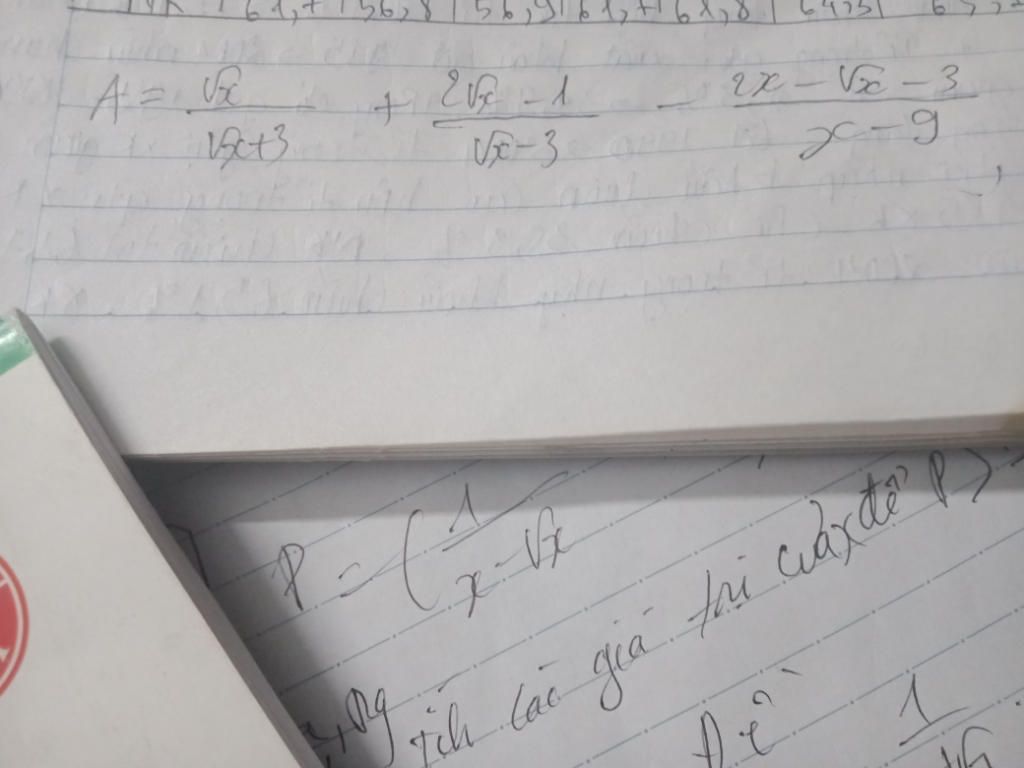 61,7 56,8 56,9 61,7 61,8 64,5
A = √x/(√x+3) + (2√x - 1)/(√x - 3) - (2x - √x - 3)/(x - 9)
P = (1/(x - √x)
các giá trị của x để P >
Để 1